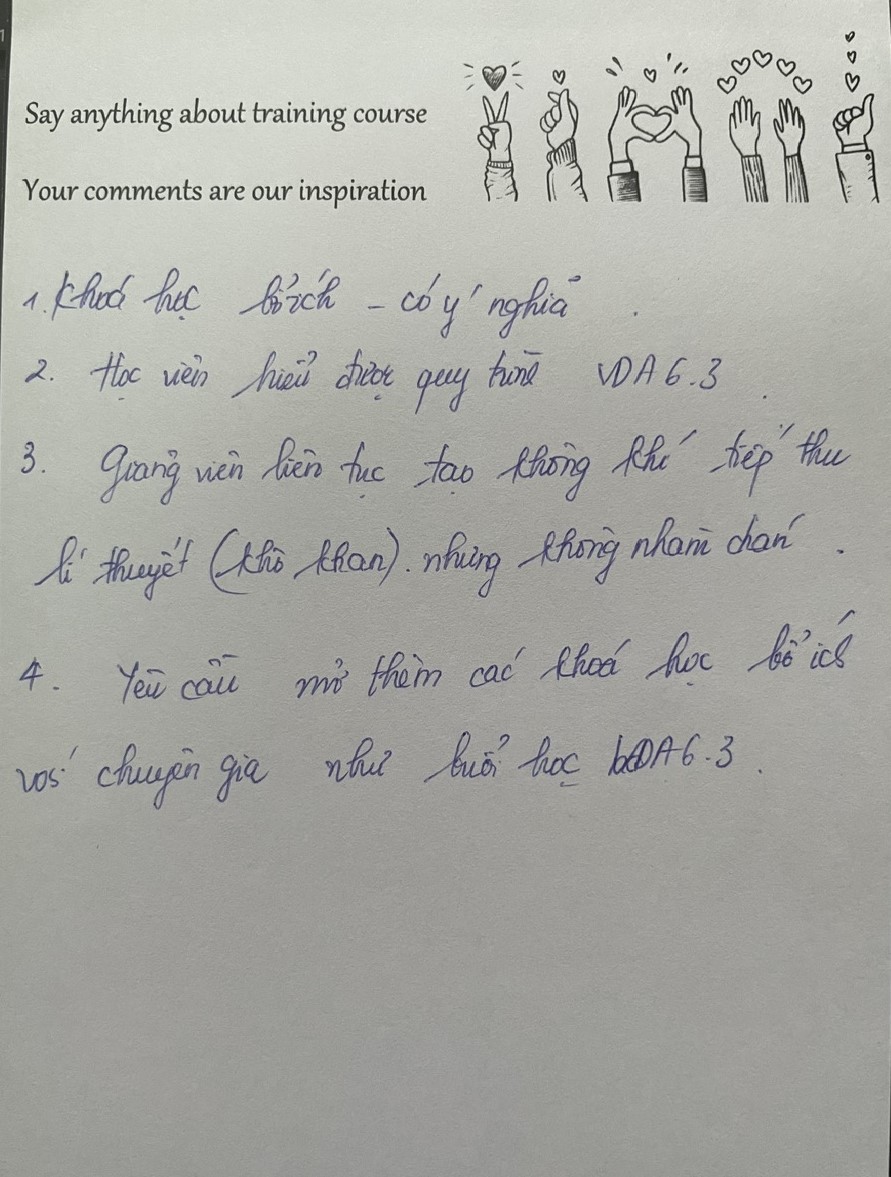 Say anything about training course
Your comments are our inspiration
1. Khoá học bổ ích - có ý nghĩa.
2. Học viên hiểu được quy trình VDA 6.3.
3. Giảng viên liên tục tạo không khí tiếp thu
lí thuyết (khô khan). nhưng không nhàm chán.
4. Yêu cầu mở thêm các khoá học bổ ích
với chuyên gia như buổi học VDA 6.3.